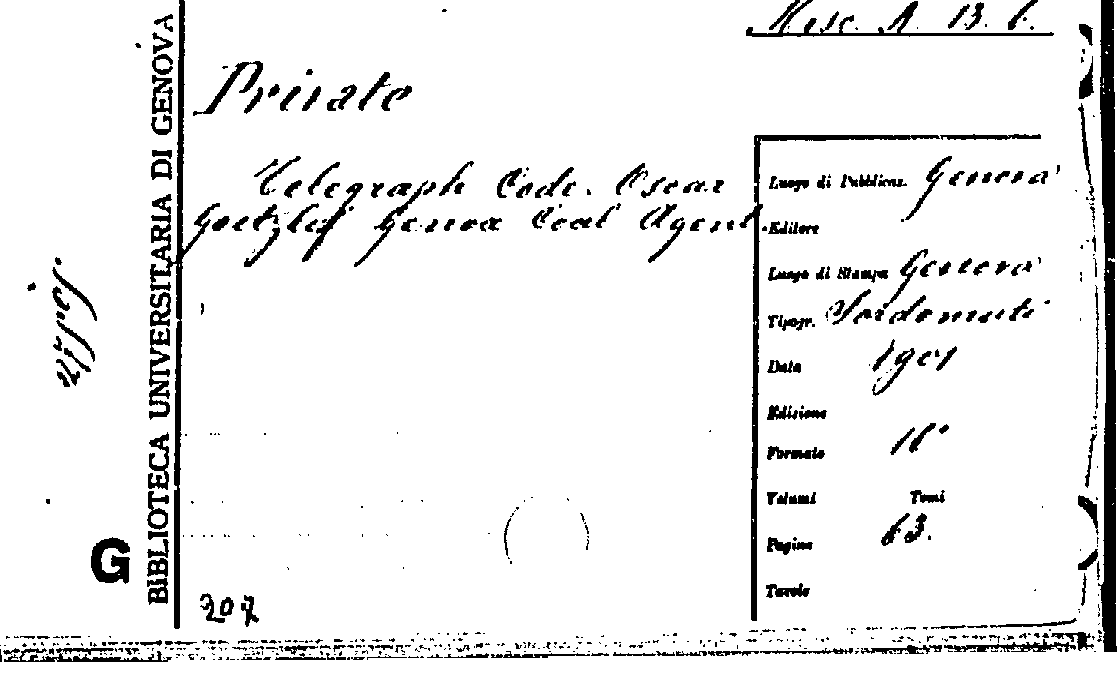 Misc. A. 13. 6.
Private
Telegraph Code. Oscar
Genoa Coal Agent.
Luogo di Pubblicaz. Genova
Editore
Luogo di Stampa Genova
Tipogr. Sordomuti
Data 1901
Edizione
Formato 16°
Volumi Tomi
Pagine 63.
Tavole
BIBLIOTECA UNIVERSITARIA DI GENOVA
G
207